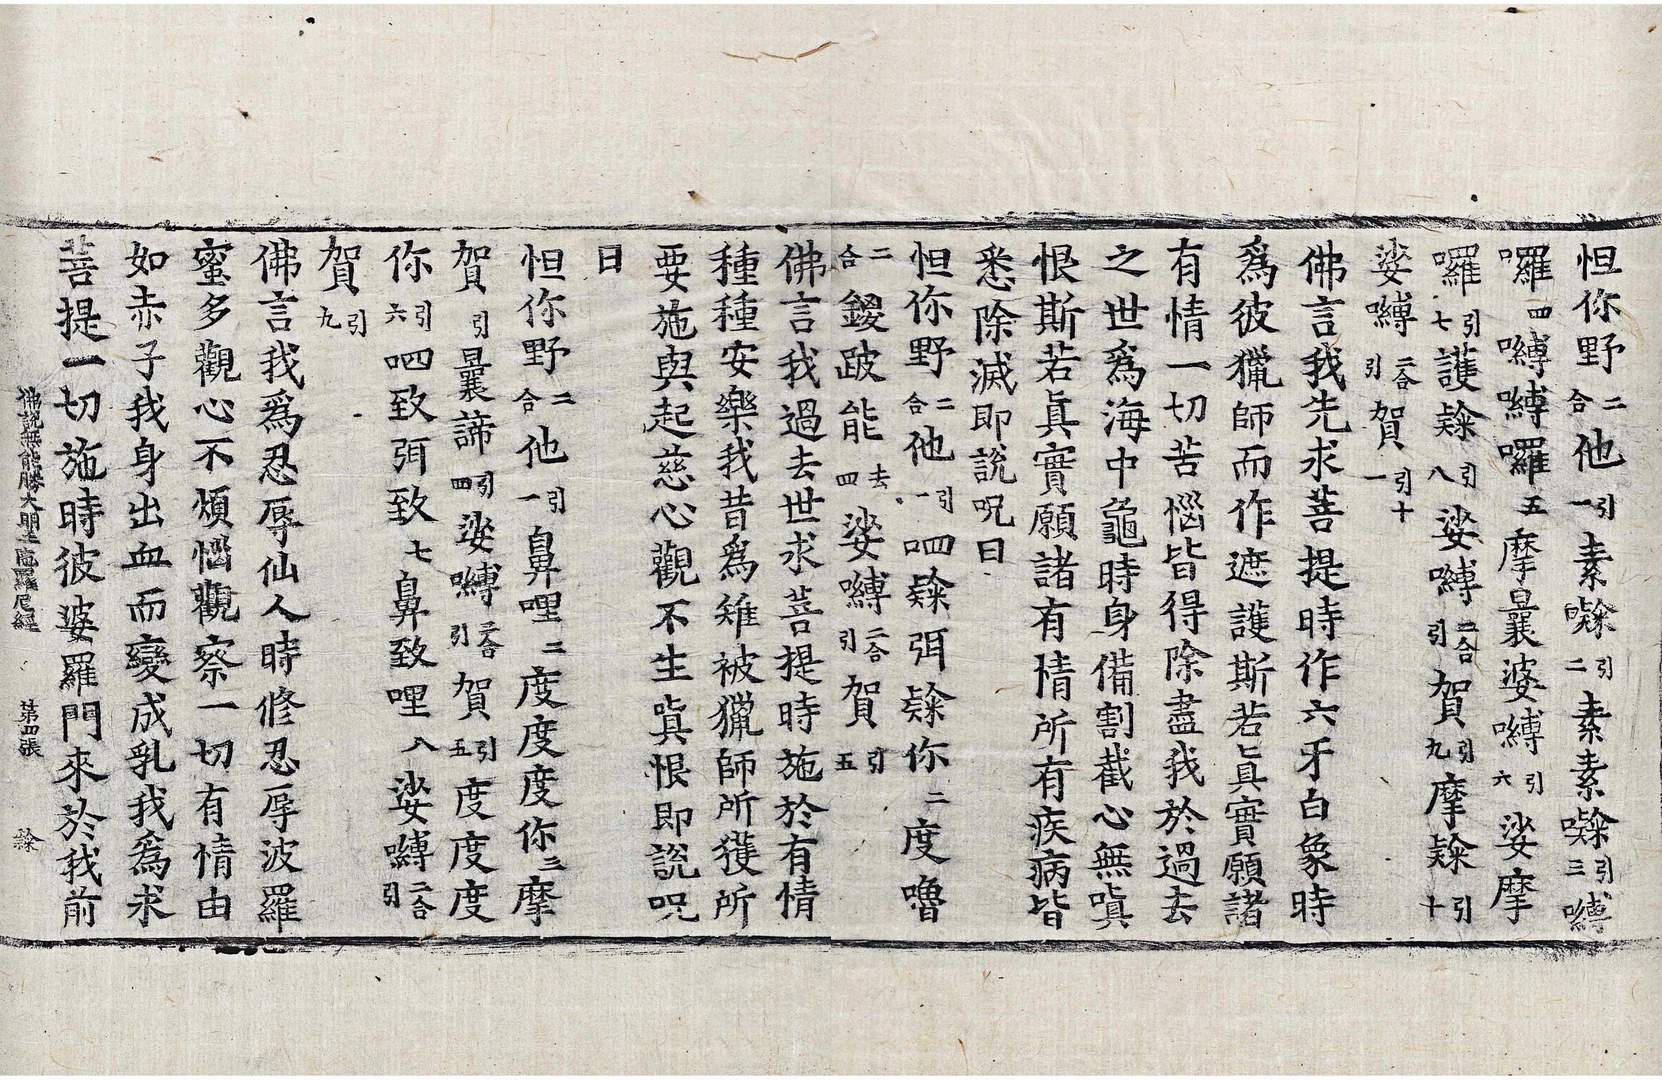 怛你野二合他引一素㘑引二素素㘑引三嚩
囉四嚩嚩囉五摩曩婆嚩引六娑摩
囉引七護㘑引八娑嚩二合引賀引九摩㘑引十
娑嚩二合引賀引十一
佛言我先求菩提時作六牙白象時
爲彼獵師而作遮護斯若眞實願諸
有情一切苦惱皆得除盡我於過去
之世爲海中龜時身備割截心無嗔
恨斯若眞實願諸有情所有疾病皆
悉除滅即說呪曰
怛你野二合他引一呬㘑弭㘑你二度嚕
二合鑁跛能去四娑嚩二合引賀引五
佛言我過去世求菩提時施於有情
種種安樂我昔爲雉被獵師所獲所
要施與起慈心觀不生嗔恨即說呪
曰
怛你野二合他引一鼻哩二度度度你三摩
賀引曩諦引四娑嚩二合引賀引五度度度
你引六呬致弭致七鼻致哩八娑嚩二合引
賀引九
佛言我爲忍辱仙人時修忍辱波羅
蜜多觀心不煩惱觀察一切有情由
如赤子我身出血而變成乳我爲求
菩提一切施時彼婆羅門來於我前
佛說無能勝大明王陁羅尼經 第四張